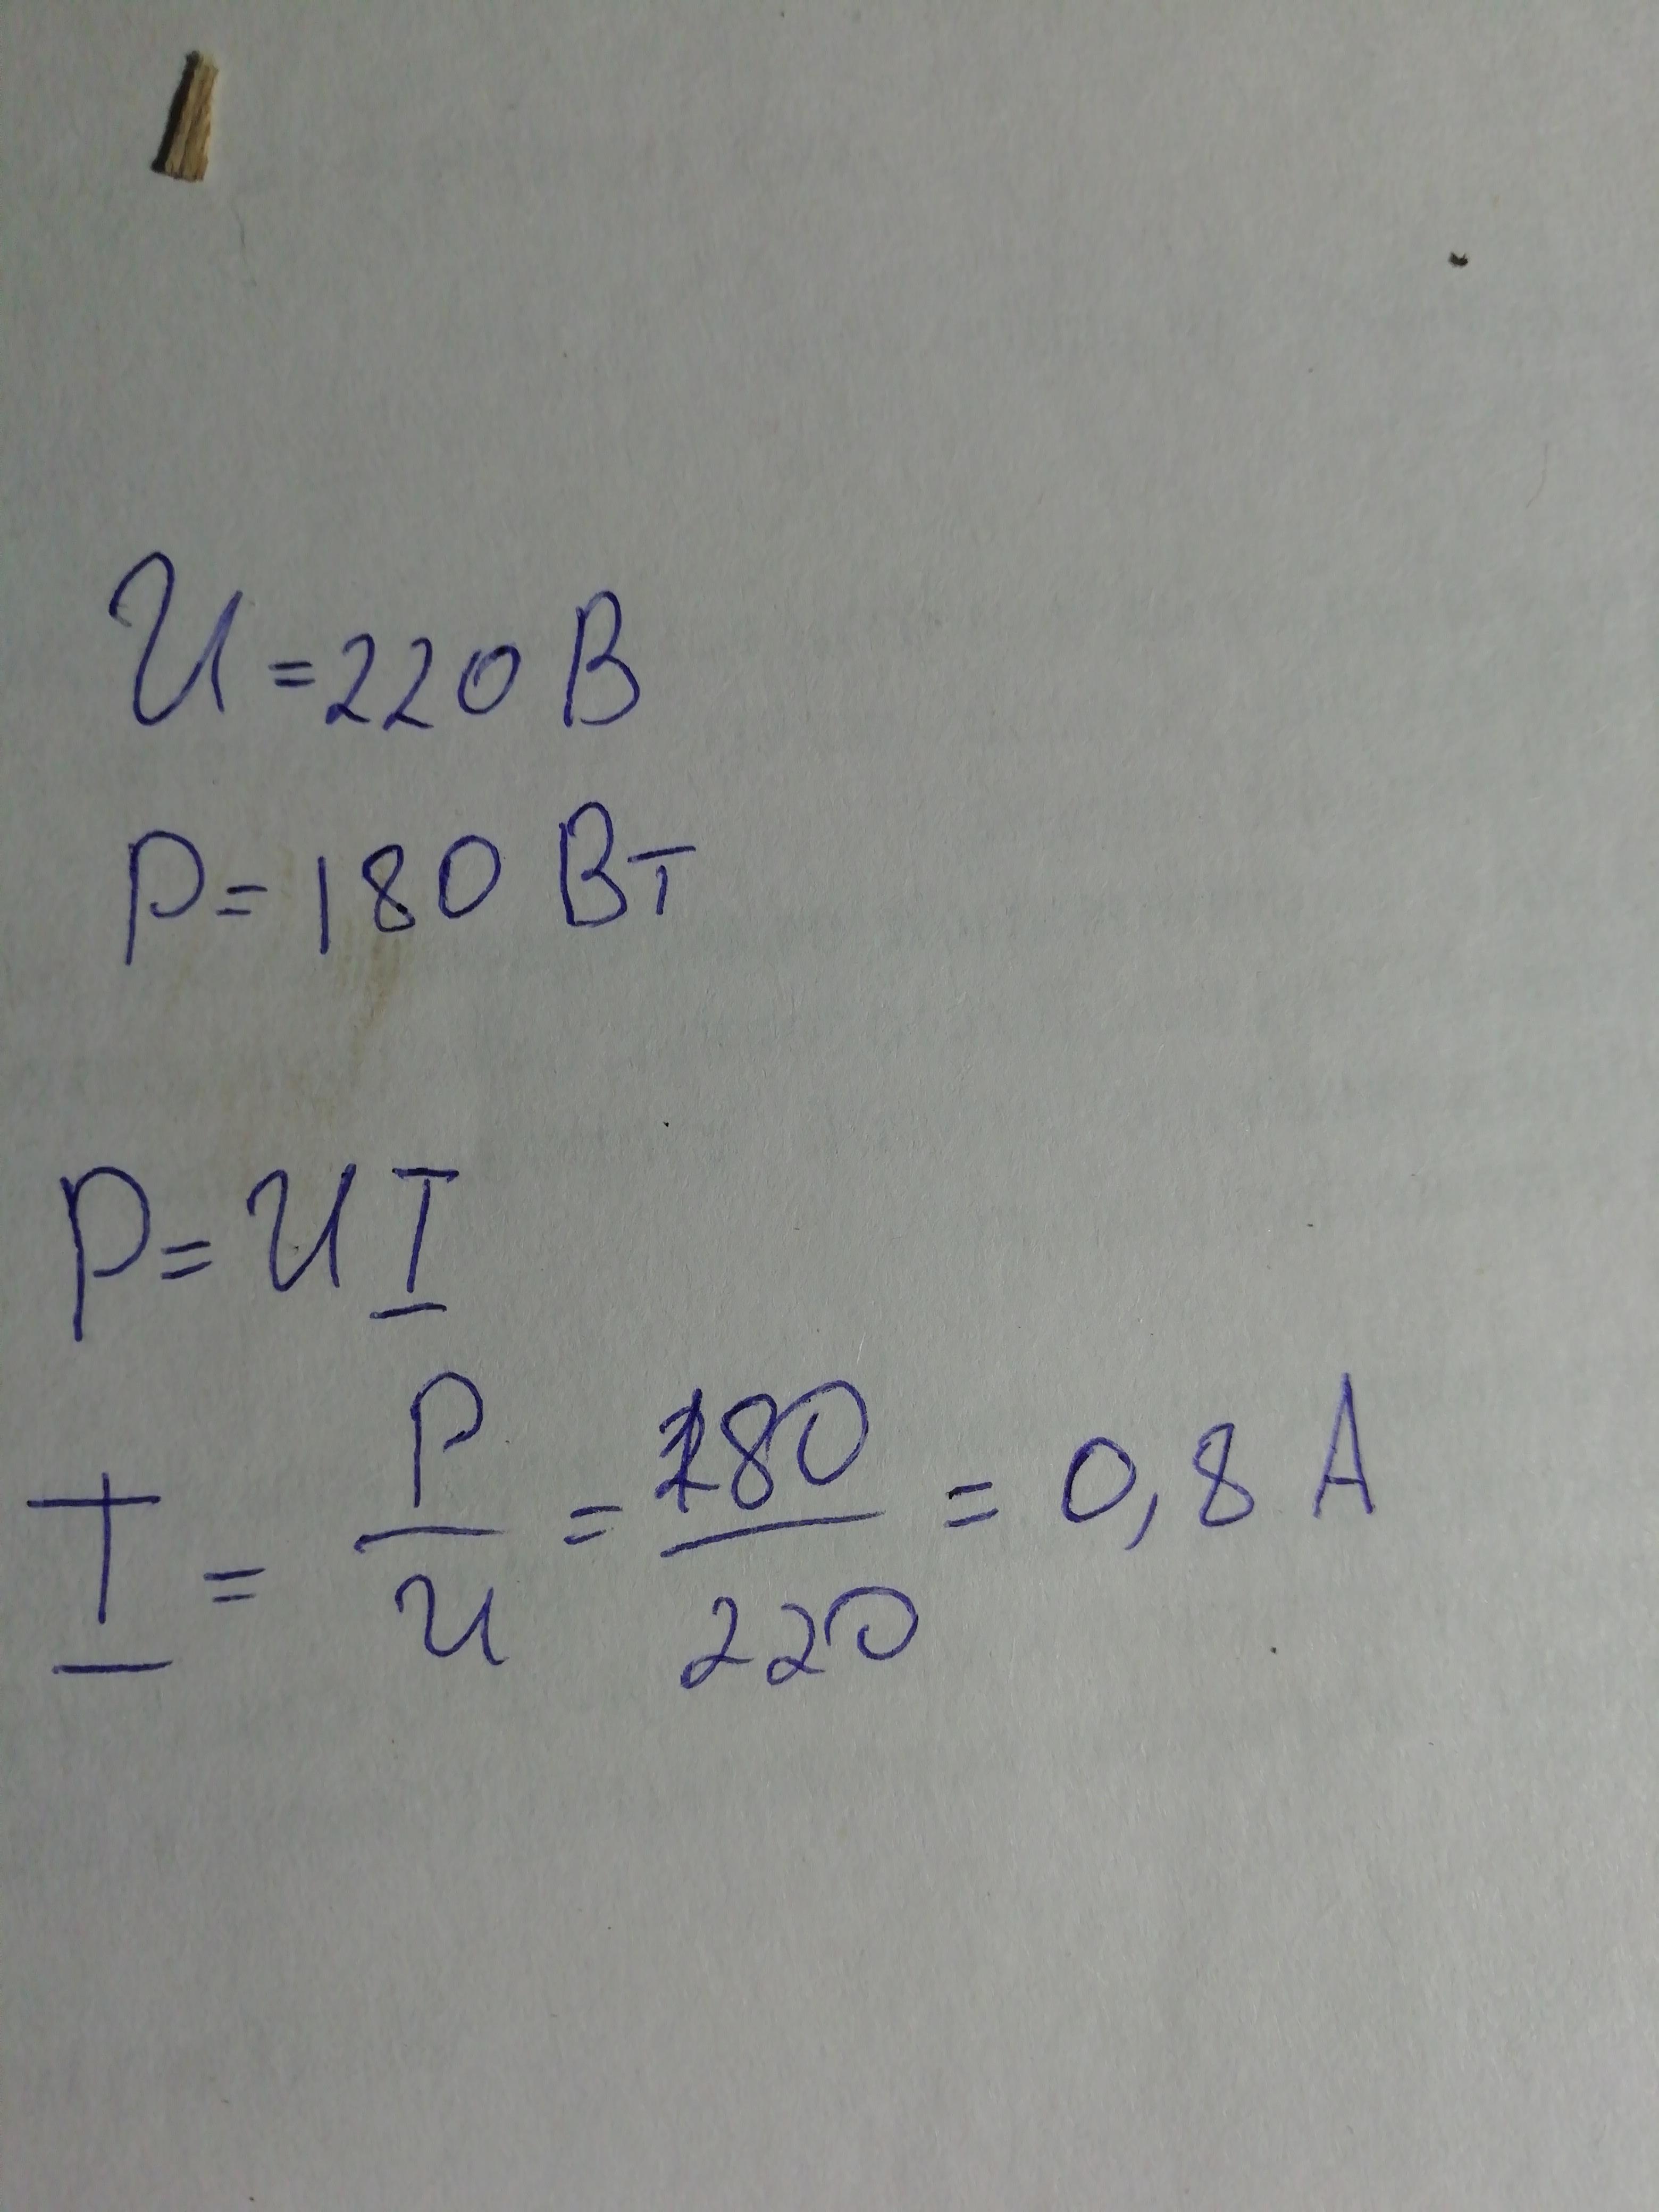 U = 220 В
P = 180 Вт
P = U I
I = P/U = 180/220 = 0,8 А